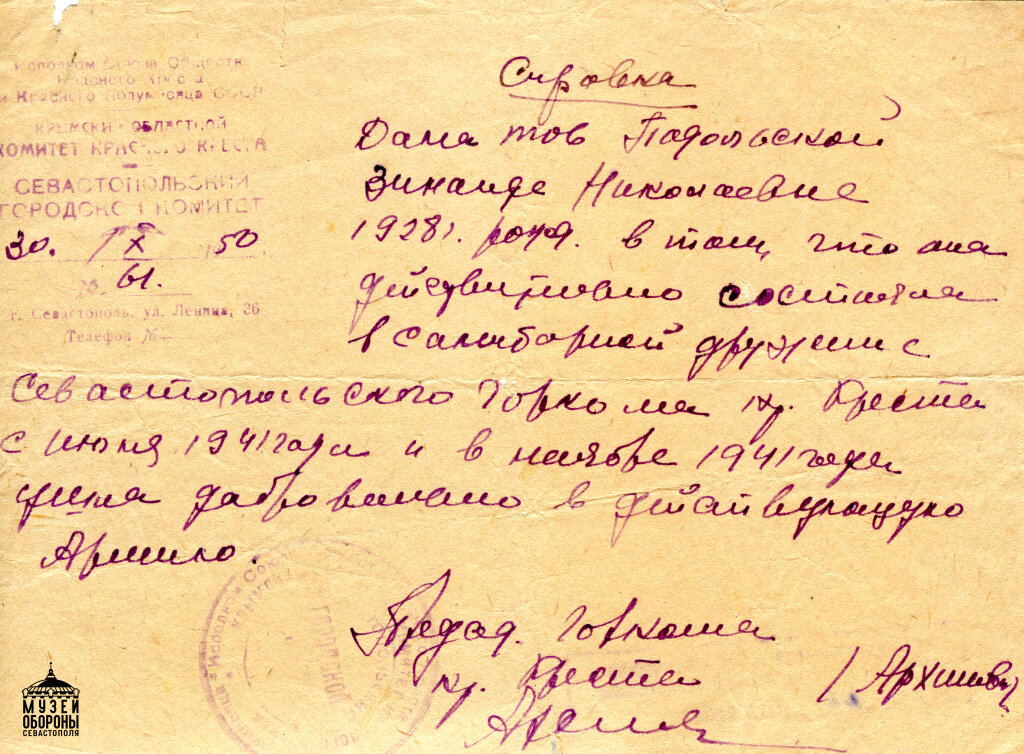 Исполком Союза Обществ
Красного Креста
и Красного Полумесяца СССР
КРЫМСКИЙ ОБЛАСТНОЙ
КОМИТЕТ КРАСНОГО КРЕСТА
СЕВАСТОПОЛЬСКИЙ
ГОРОДСКОЙ КОМИТЕТ
30. IX 50
№ 61.
г. Севастополь, ул. Ленина, 26
Телефон №
Справка
Дана тов Подольской
Зинаиде Николаевне
1928г. рожд. в том, что она
действительно состояла
в санитарной дружине
Севастопольского Горкома кр. Креста
с июня 1941 года и в ноябре 1941 года
ушла добровольно в действующую
Армию.
Председ. Горкома
кр. Креста
МУЗЕЙ
ОБОРОНЫ
СЕВАСТОПОЛЯ